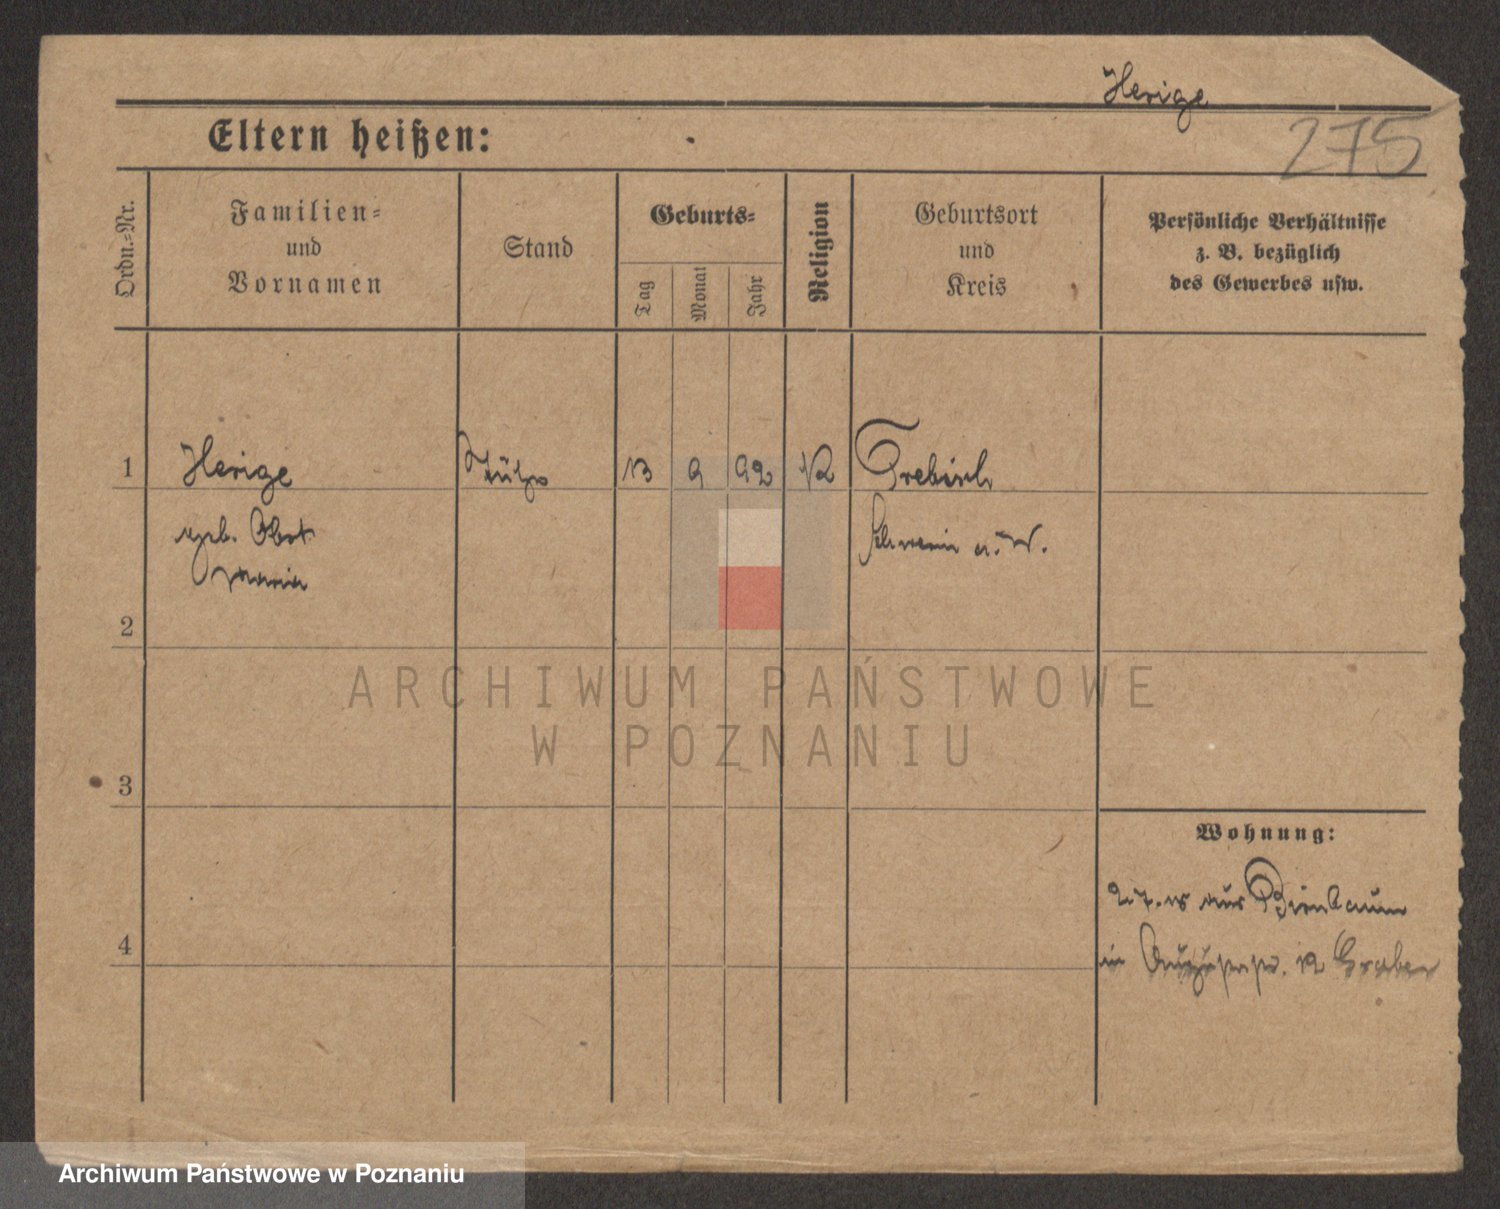 Herige
275
Eltern heißen:
Ordn.-Nr.
Familien-
und
Vornamen
Stand
Geburts-
Tag
Monat
Jahr
Religion
Geburtsort
und
Kreis
Persönliche Verhältnisse
z. B. bezüglich
des Gewerbes usw.
1
Herige
13 9 92
Trebisch
geb.
Maria
Schwerin a. W.
2
3
4
Wohnung:
aus Birnbaum
in 12 Graben
ARCHIWUM PAŃSTWOWE
W POZNANIU
Archiwum Państwowe w Poznaniu